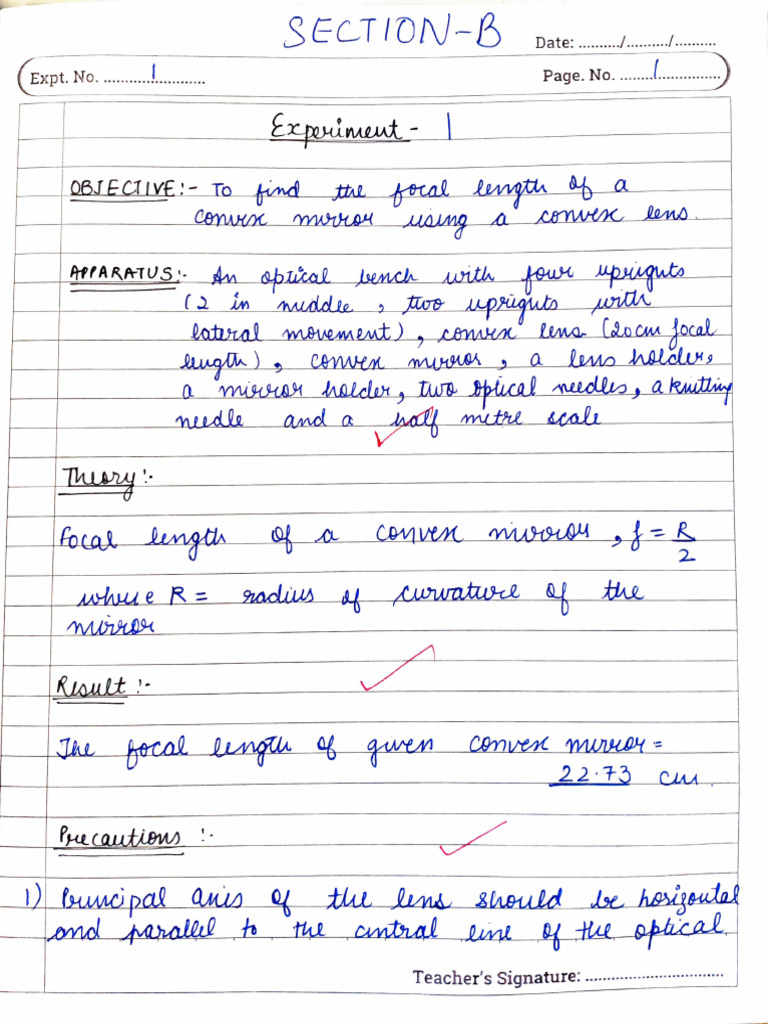 SECTION-B
Date: ........../........../..........
Expt. No. ............1............
Page. No. ........1................
Experiment - 1
OBJECTIVE:- To find the focal length of a
convex mirror using a convex lens.
APPARATUS:- An optical bench with four uprights
(2 in middle, two uprights with
lateral movement), convex lens (20cm focal
length), convex mirror, a lens holder,
a mirror holder, two optical needles, a knitting
needle and a half metre scale
Theory:-
Focal length of a convex mirror, f = R/2
where R = radius of curvature of the
mirror
Result:-
The focal length of given convex mirror =
22.73 cm.
Precautions:-
1) Principal axis of the lens should be horizontal
and parallel to the central line of the optical
Teacher's Signature: ................................